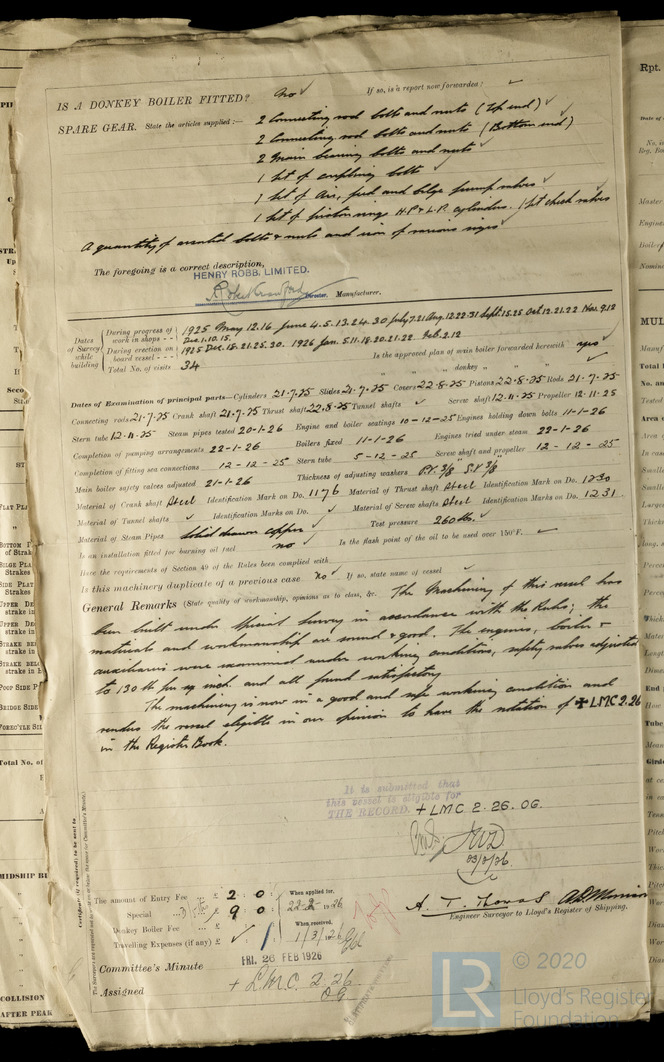 IS A DONKEY BOILER FITTED? No ✓ If so, is a report now forwarded? ✓
SPARE GEAR. State the articles supplied:— 2 Connecting rod bolts and nuts (Top end) ✓
2 Connecting rod bolts and nuts (Bottom end)
2 Main bearing bolts and nuts ✓
1 Set of coupling bolts ✓
1 Set of Air, feed and bilge pump valves ✓
1 Set of piston rings H.P. & L.P. cylinders. 1 set check valves
A quantity of assorted bolts & nuts and iron of various sizes ✓
The foregoing is a correct description,
HENRY ROBB. LIMITED.
Director. Manufacturer.
Dates of Survey while building
During progress of work in shops -- 1925 May 12.16 June 4.5.13.24.30 July 7.21 Aug. 12.22.31 Sept. 15.25 Oct. 12.21.22 Nov. 9.12
Dec. 1.10.15.
During erection on board vessel --- 1925 Dec. 18.21.25.20. 1926 Jan. 5.11.18.20.21.22 Feb. 2.12
Total No. of visits 34 Is the approved plan of main boiler forwarded herewith yes ✓
" " " donkey " " " ✓
Dates of Examination of principal parts—Cylinders 21.7.25 Slides 21.7.25 Covers 22.8.25 Pistons 22.8.25 Rods 21.7.25
Connecting rods 21.7.25 Crank shaft 21.7.25 Thrust shaft 22.8.25 Tunnel shafts ✓ Screw shaft 12.11.25 Propeller 12.11.25
Stern tube 12.11.25 Steam pipes tested 20-1-26 Engine and boiler seatings 10-12-25 Engines holding down bolts 11-1-26
Completion of pumping arrangements 22-1-26 Boilers fixed 11-1-26 Engines tried under steam 22-1-26
Completion of fitting sea connections 12-12-25 Stern tube 5-12-25 Screw shaft and propeller 12-12-25
Main boiler safety valves adjusted 21-1-26 Thickness of adjusting washers P.V. 3/8 S.V. 3/8
Material of Crank shaft Steel Identification Mark on Do. 1176 Material of Thrust shaft Steel Identification Mark on Do. 1230
Material of Tunnel shafts ✓ Identification Marks on Do. ✓ Material of Screw shaft Steel Identification Marks on Do. 1231
Material of Steam Pipes Solid drawn copper ✓ Test pressure 260 lbs. ✓
Is an installation fitted for burning oil fuel no ✓ Is the flash point of the oil to be used over 150°F. ✓
Have the requirements of Section 49 of the Rules been complied with
Is this machinery duplicate of a previous case no ✓ If so, state name of vessel ✓
General Remarks (State quality of workmanship, opinions as to class, &c. The Machinery of this vessel has
been built under Special Survey in accordance with the Rules; the
materials and workmanship are sound & good. The engines, boiler &
auxiliaries were examined under working conditions, safety valves adjusted
to 130 lb per sq inch. and all found satisfactory
The machinery is now in a good and safe working condition and
renders the vessel eligible in our opinion to have the notation of ✠ LMC 2.26
in the Register Book.
It is submitted that
this vessel is eligible for
THE RECORD. + LMC 2.26. OG.
23/2/26
Certificate (if required) to be sent to
The amount of Entry Fee £ 2 : 0 : When applied for,
Special £ 9 : 0 : 22-2-1926
Donkey Boiler Fee £ When received,
Travelling Expenses (if any) £ ✓ 1/3/26
A. T. Thomas A.D. Morrison
Engineer Surveyor to Lloyd's Register of Shipping.
Committee's Minute FRI. 26 FEB 1926
Assigned + L.M.C. 2.26
OG
LR © 2020
Lloyd's Register
Foundation
Rpt.
MUL
Total No. of
MIDSHIP BU
COLLISION
AFTER PEAK